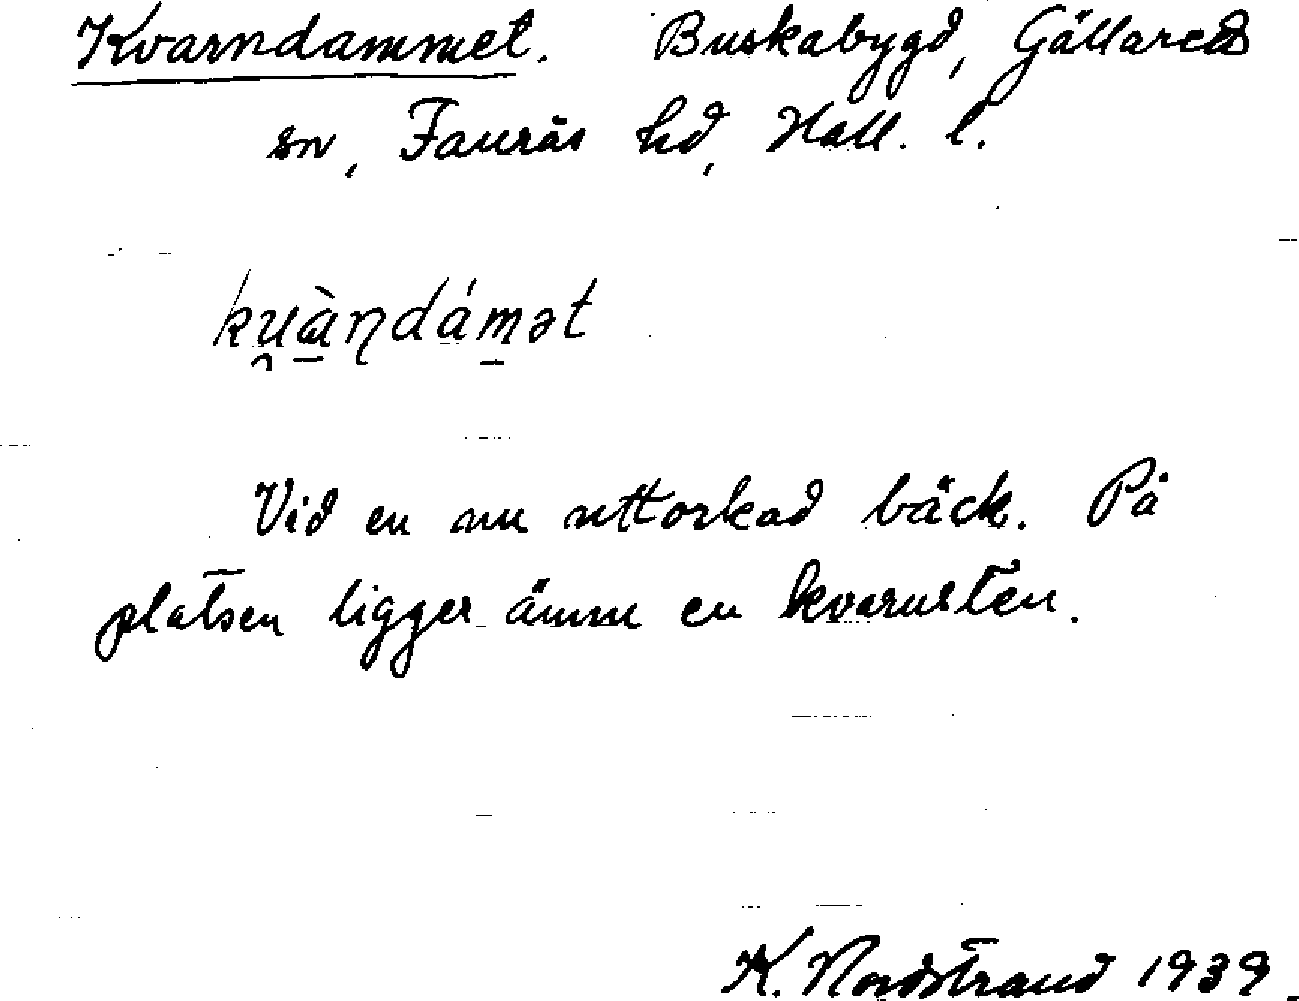 Kvarndammet. Buskabygd, Gällareds
sn, Faurås hd, Hall. l.
ku̯à̱ɳdámət
Vid en nu uttorkad bäck. På
platsen ligger ännu en kvarnsten.
K. Nordstrand 1939.